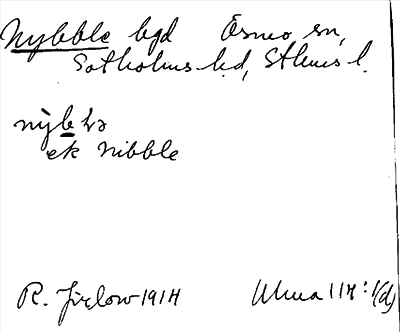 Nybble bgd Ösmo sn,
Sotholms hd, Sthms l.
nỳbḷə
ek Nibble
R. Jirlow 1914 Muua 114:1(d)